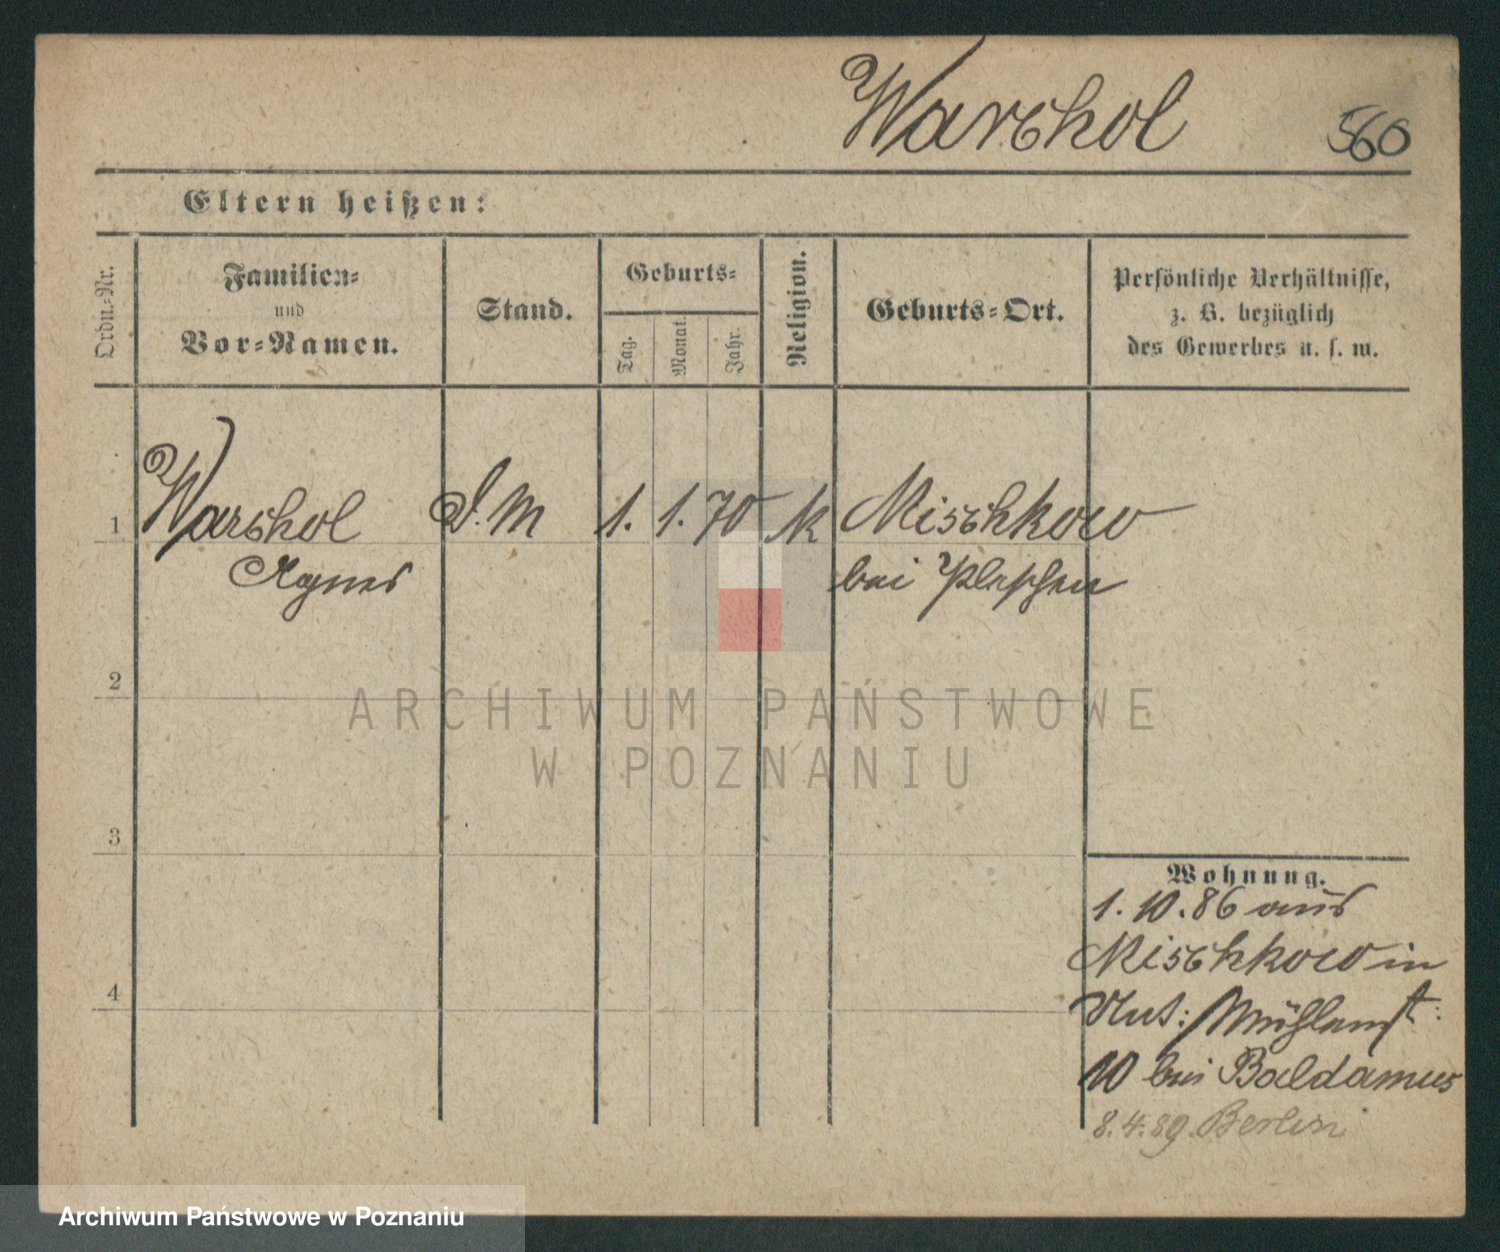 Warschol 560
Eltern heißen:
Ordn.-Nr.
Familien-
und
Vor-Namen.
Stand.
Geburts-
Tag.
Monat.
Jahr.
Religion.
Geburts-Ort.
Persönliche Verhältnisse,
z. B. bezüglich
des Gewerbes u. s. w.
1 Warschol D. M 1. 1. 70 k Mischkow
Agnes bei Pleschen
2
3
4
Wohnung.
1. 10. 86 aus
Mischkow in
Mühlenst.
10 bei Baldamus
8. 4. 89. Berlin
ARCHIWUM PAŃSTWOWE
W POZNANIU
Archiwum Państwowe w Poznaniu